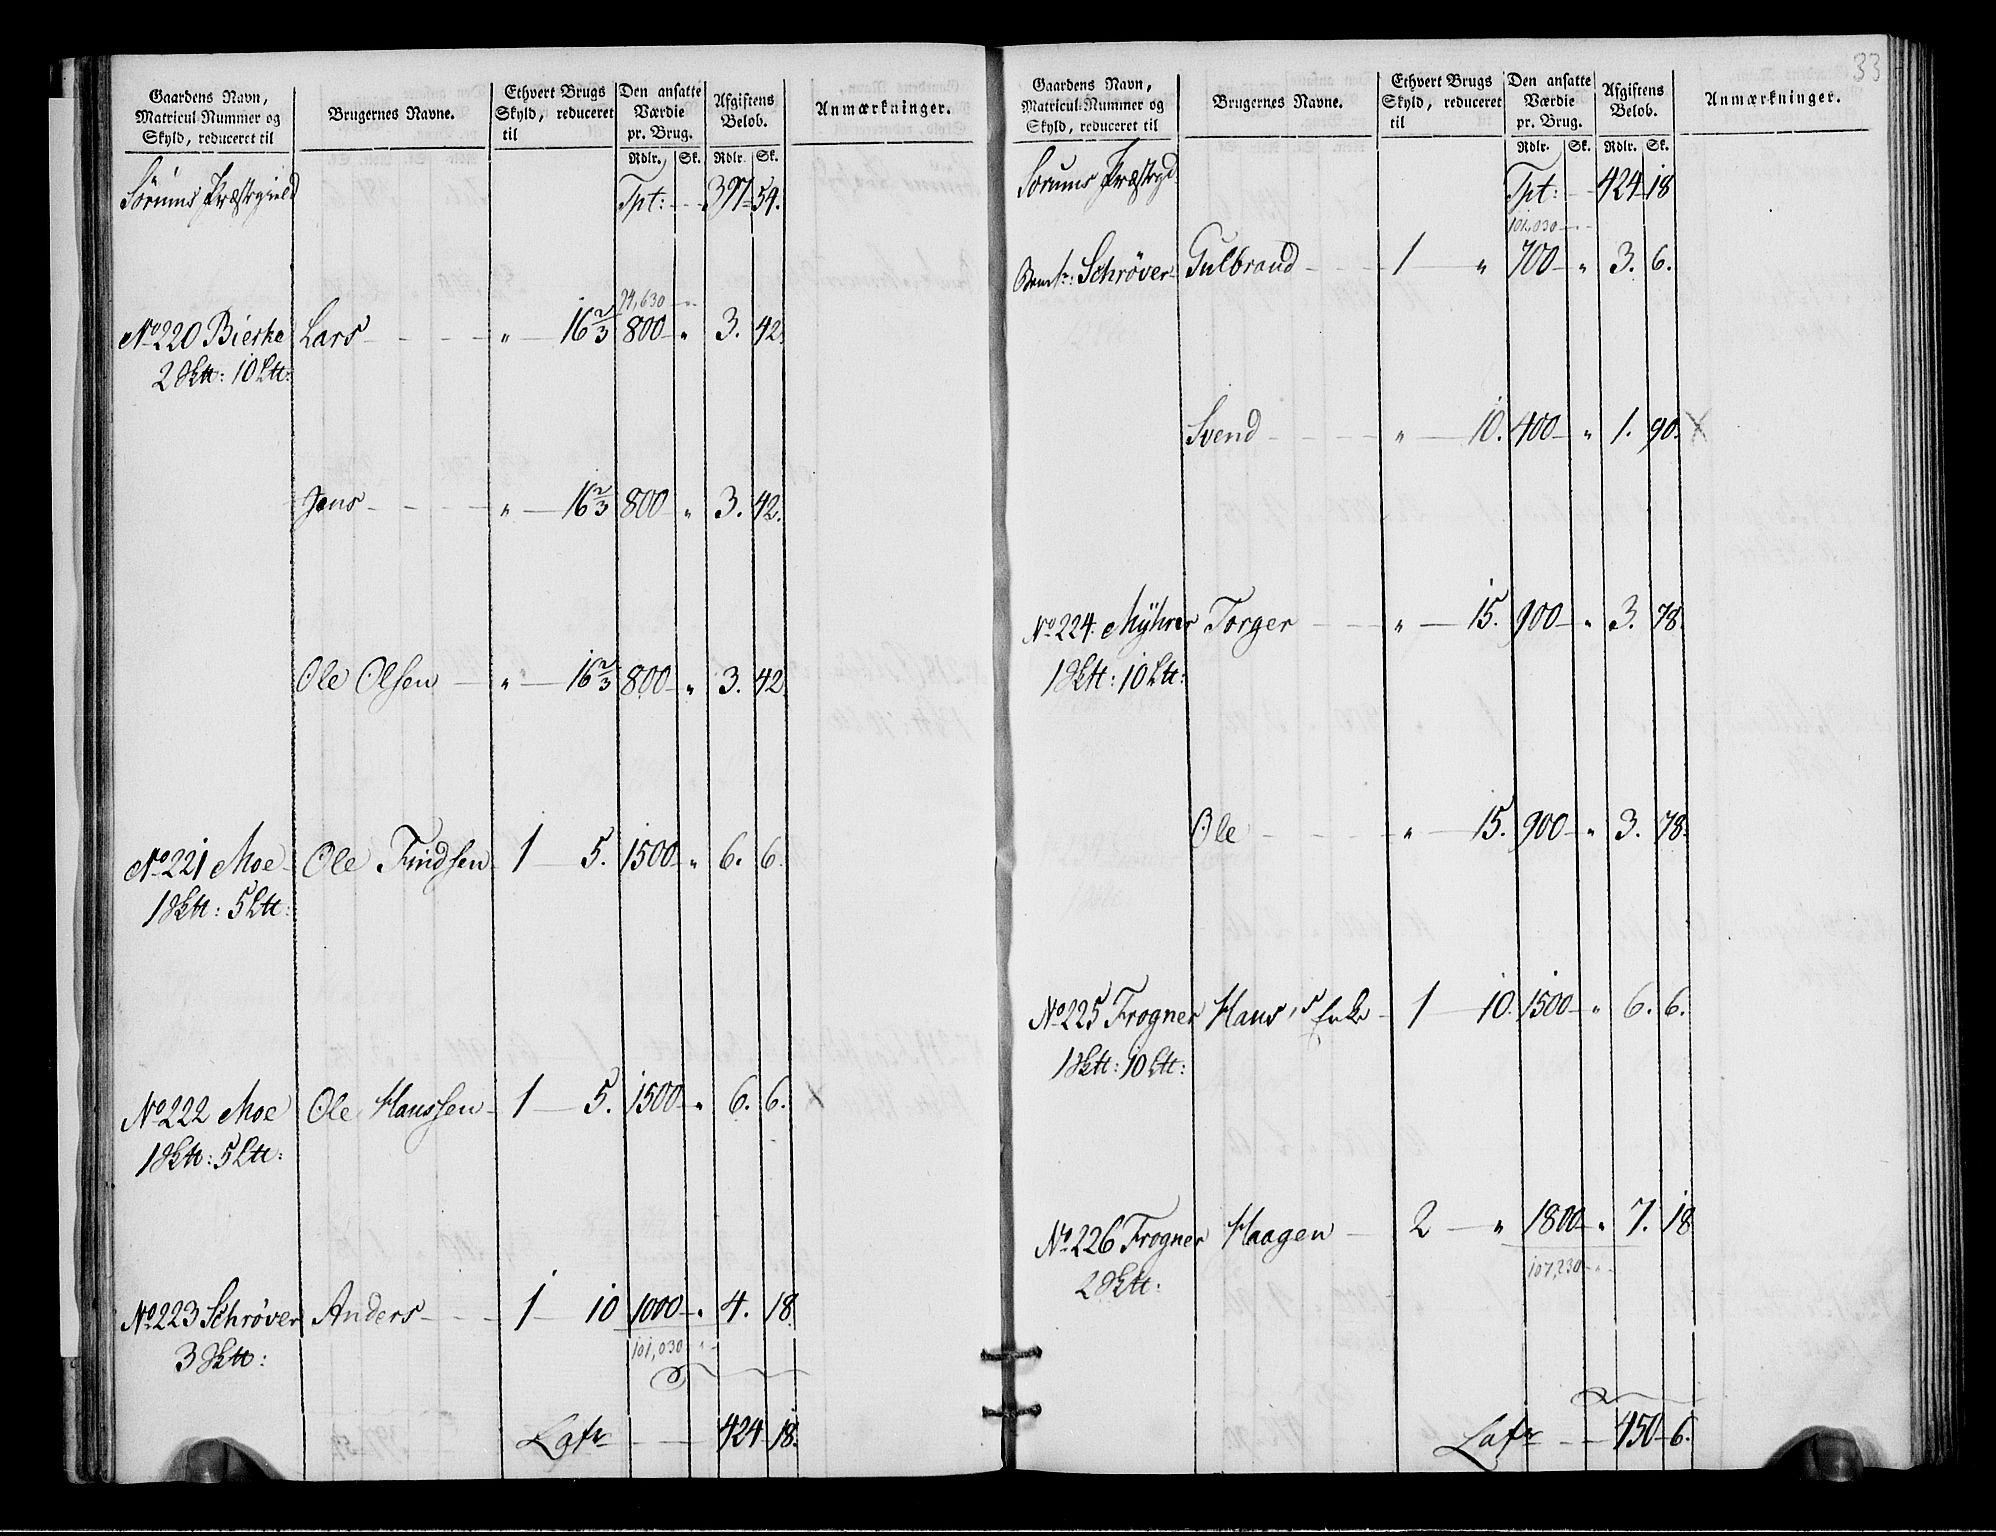 Gaardens Navn, Matricul-Nummer og Skyld, reduceret til | Brugernes Navne. | Ethvert Brugs Skyld, reduceret til | Den ansatte Værdie pr. Brug. | Afgiftens Beløb. | Anmærkninger.
Rdlr. | Sk. | Rdlr. | Sk.
Sørums Præstegield Tpt: - - 397 - 54.
94,630 - "-
No 220 Bierke Lars - - - - " - 16 2/3 800 - " 3. 42.
2 Sktt: 10 Ltt:
Jens - - - - " - 16 2/3 800 - " 3. 42.
Ole Olsen - " - 16 2/3 800 - " 3. 42
No 221 Moe Ole Findsen 1 - 5. 1500 - " 6. 6.
1 Sktt: 5 Ltt:
No 222 Moe Ole Hanssen - 1 - 5. 1500 - " 6. 6. X
1 Sktt: 5 Ltt:
No 223 Schrøver Anders - - - 1 - 10 1000 - " 4. 18.
3 Sktt:
101,030 "-
Latr - - 424 - 18.
33
Gaardens Navn, Matricul-Nummer og Skyld, reduceret til | Brugernes Navne. | Ethvert Brugs Skyld, reduceret til | Den ansatte Værdie pr. Brug. | Afgiftens Beløb. | Anmærkninger.
Rdlr. | Sk. | Rdlr. | Sk.
Sørums Præstegd Tpt: - - 424 - 18
101,030 - "-
Schrøver Gulbrand - - - 1 - " 700 - " 3. 6.
Svend - - - - " - 10. 400 - " 1. 90. X
No 224. Mÿhrer Torger - - - " - 15. 900 - " 3. 78.
1 Sktt: 10 Ltt:
Ole - - - - " - 15. 900 - " 3. 78.
No 225 Frogner Hans's Enke - 1 - 10. 1500 - " 6. 6.
1 Sktt: 10 Ltt:
No 226 Frogner Haagen - 2 - " 1800 - " 7. 18
2 Sktt:
107,230 - "-
Latr - - 450 - 6.